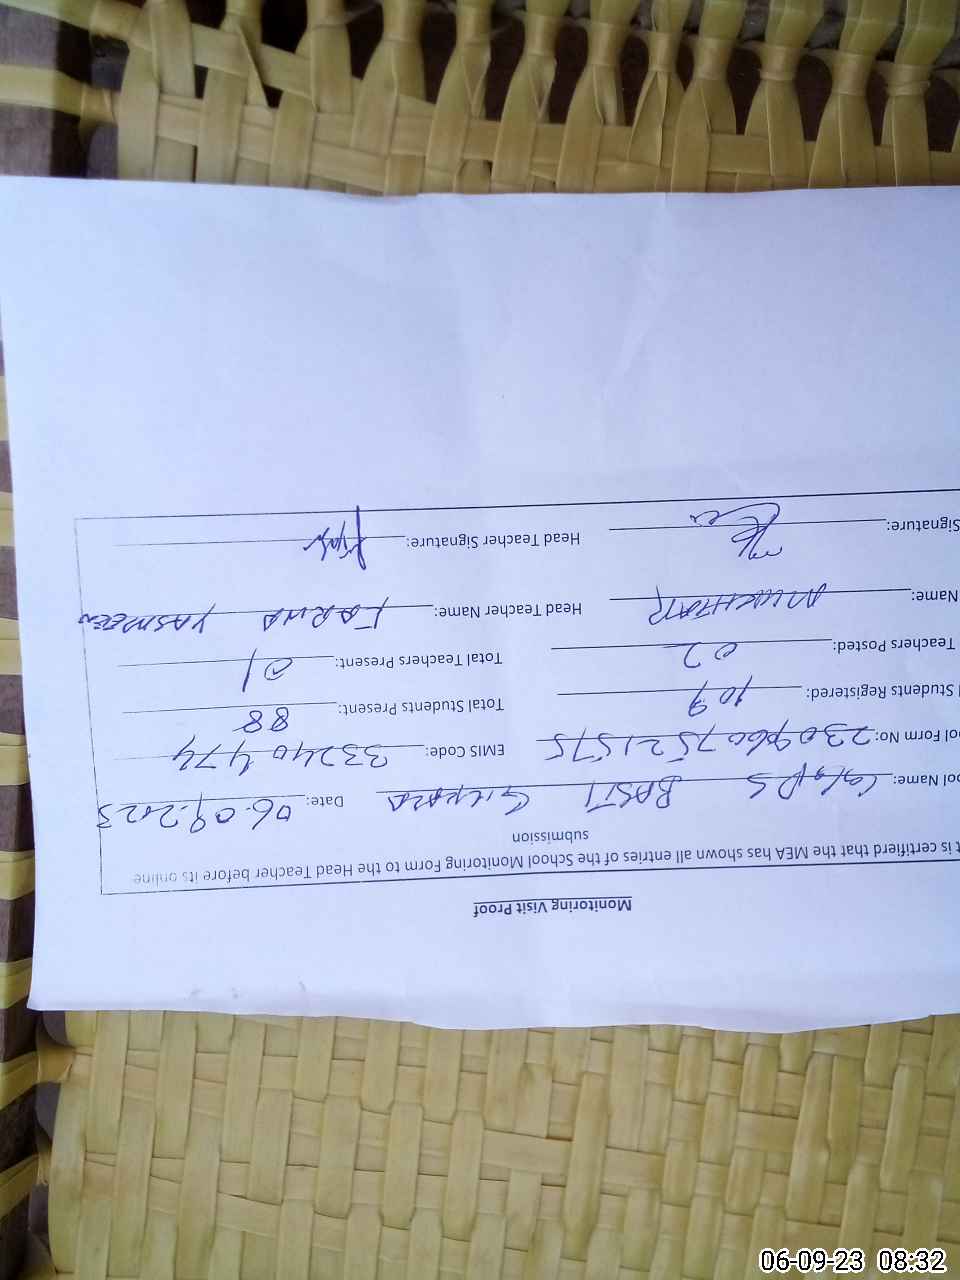 Monitoring Visit Proof
t is certifierd that the MEA has shown all entries of the School Monitoring Form to the Head Teacher before its online
submission
ool Name: GGPS BASTI Date: 06.09.2023
ool Form No: EMIS Code: 33240474
l Students Registered: 109 Total Students Present: 88
Teachers Posted: 02 Total Teachers Present: 01
Name: MUKHTAR Head Teacher Name: FARHA YASMEEN
Signature: Head Teacher Signature:
06-09-23 08:32